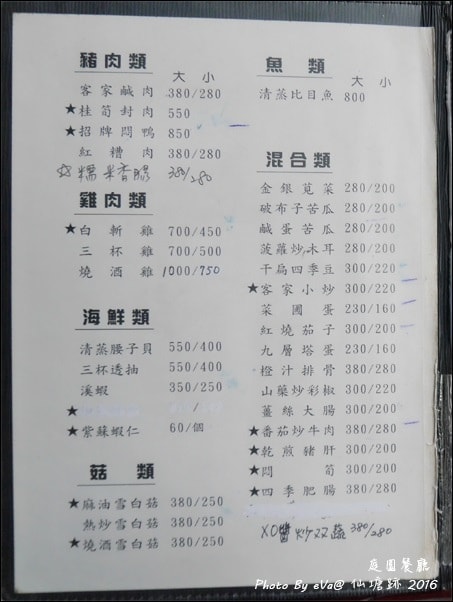 豬肉類
大 小
客家鹹肉 380/280
★桂筍封肉 550
★招牌悶鴨 850
紅糟肉 380/280
☆糯米香腸 380/280
雞肉類
★白斬雞 700/450
三杯雞 700/500
燒酒雞 1000/750
海鮮類
清蒸腰子貝 550/400
三杯透抽 550/400
溪蝦 350/250
★
★紫蘇蝦仁 60/個
菇類
★麻油雪白菇 380/250
熱炒雪白菇 380/250
★燒酒雪白菇 380/250
魚類
大 小
清蒸比目魚 800
混合類
金銀莧菜 280/200
破布子苦瓜 280/200
鹹蛋苦瓜 280/200
菠蘿炒木耳 280/200
干扁四季豆 300/220
★客家小炒 300/220
菜圃蛋 230/160
紅燒茄子 300/200
九層塔蛋 230/160
橙汁排骨 380/280
山藥炒彩椒 300/220
薑絲大腸 300/200
★番茄炒牛肉 380/280
★乾煎豬肝 300/200
★悶筍 300/200
★四季肥腸 380/280
XO醬炒双蔬 380/280
庭園餐廳
Photo By eVa@ 仙塘跡 2016